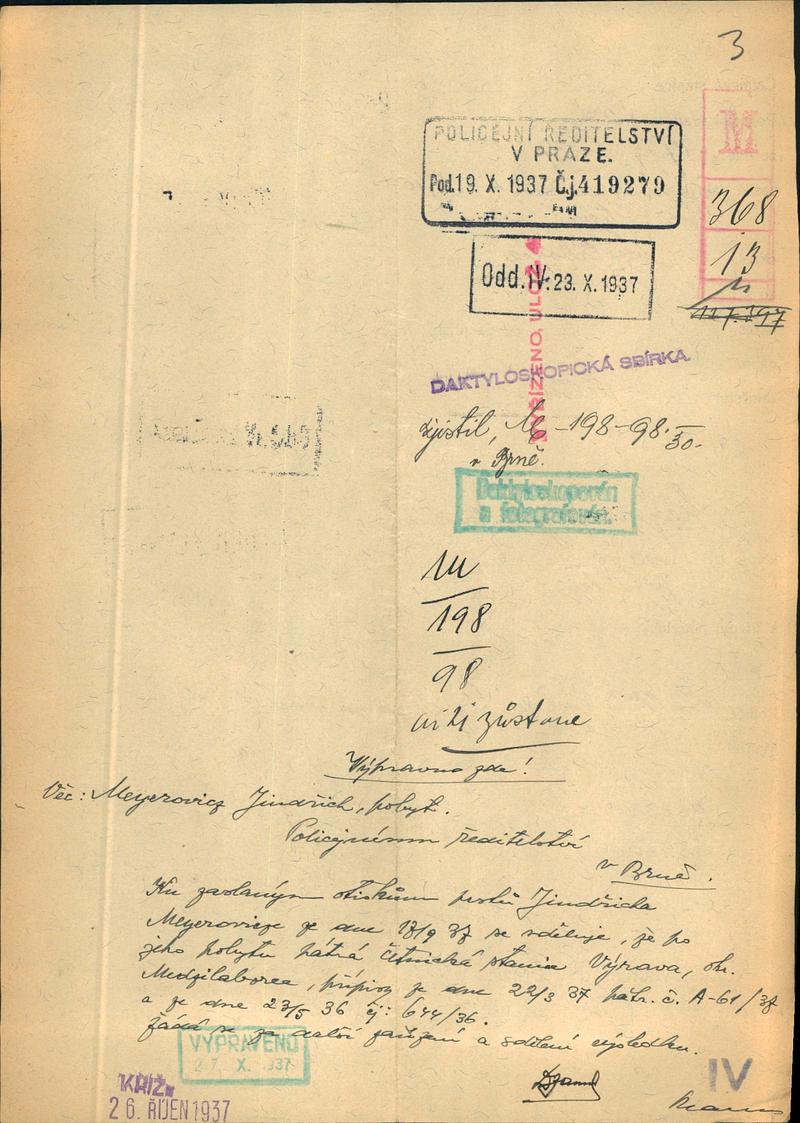 3
POLICEJNÍ ŘEDITELSTVÍ
V PRAZE.
Pod. 19. X. 1937 Č.j. 419279
M
368
13
Odd. IV. 23. X. 1937
VYŘÍZENO, ULOŽ
DAKTYLOSKOPICKÁ SBÍRKA
zjistil, -198-98
v Brně.
Daktyloskopován
a fotografován.
198
98
zůstane
Výpravno zde!
Věc: Meyerovicz Jindřich, pobyt.
Policejnímu ředitelství
v Brně.
Ku zaslaným otiskům prstů Jindřicha
Meyerovicze ze dne 13/9 37 se sděluje, že po
jeho pobytu pátrá četnická stanice Výrava, okr.
Medzilaborce, přípisy ze dne 22/3 37 pátr. č. A-61/37
a ze dne 23/5 36 čj: 644/36.
Žádá se za další zařízení a sdělení výsledku.
VYPRAVENO
27. X. 1937
KŘÍŽ
26. ŘÍJEN 1937
IV